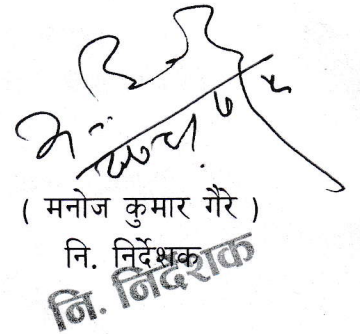 ( मनोज कुमार गैरे )
नि. निर्देशक
नि. निर्देशक